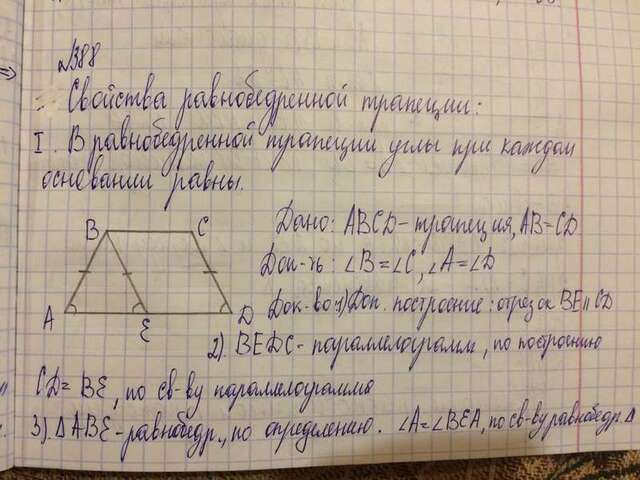 №388
Свойства равнобедренной трапеции:
I. В равнобедренной трапеции углы при каждом
основании равны.
B C
A E D
Дано: ABCD - трапеция, AB=CD
Док-ть: ∠B=∠C, ∠A=∠D
Док-во: 1) Доп. построение: отрезок BE||CD
2). BEDC - параллелограмм, по построению
CD = BE, по св-ву параллелограмма
3). ΔABE - равнобедр., по определению. ∠A=∠BEA, по св-ву равнобедр. Δ